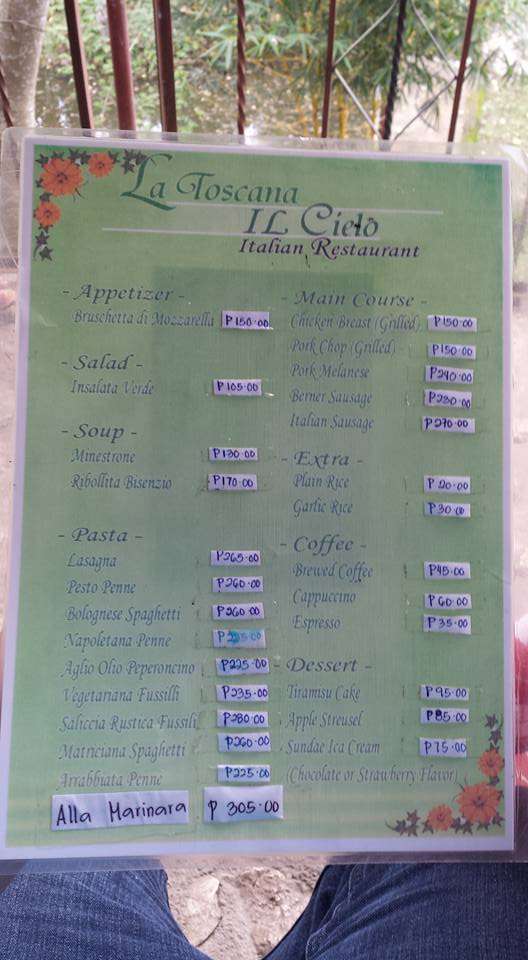 La Toscana
IL Cielo
Italian Restaurant
- Appetizer -
Bruschetta di Mozzarella ₱150.00
- Salad -
Insalata Verde ₱105.00
- Soup -
Minestrone ₱130.00
Ribollita Bisenzio ₱170.00
- Pasta -
Lasagna ₱265.00
Pesto Penne ₱260.00
Bolognese Spaghetti ₱260.00
Napoletana Penne
Aglio Olio Peperoncino ₱225.00
Vegetariana Fussilli ₱235.00
Saliccia Rustica Fussili ₱280.00
Matriciana Spaghetti ₱260.00
Arrabbiata Penne ₱225.00
Alla Marinara ₱ 305.00
- Main Course -
Chicken Breast (Grilled) ₱150.00
Pork Chop (Grilled) ₱150.00
Pork Melanese ₱240.00
Berner Sausage ₱230.00
Italian Sausage ₱270.00
- Extra -
Plain Rice ₱ 20.00
Garlic Rice ₱30.00
- Coffee -
Brewed Coffee ₱45.00
Cappuccino ₱60.00
Espresso ₱35.00
- Dessert -
Tiramisu Cake ₱95.00
Apple Streusel ₱85.00
Sundae Ica Cream ₱75.00
(Chocolate or Strawberry Flavor)